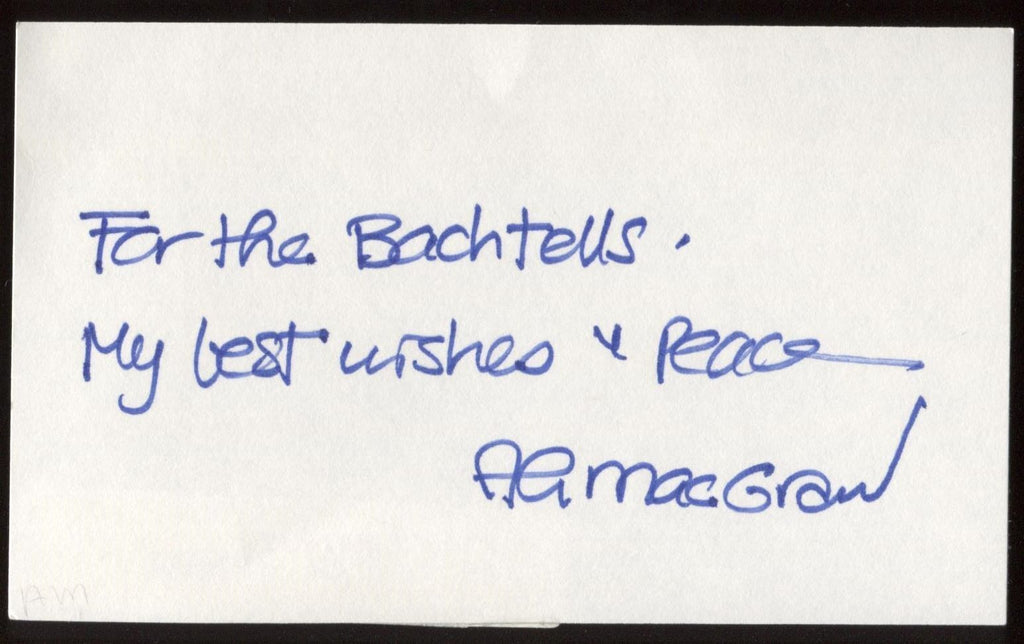 For the Bachtells.
My best wishes & Peace
Ali MacGraw
AM